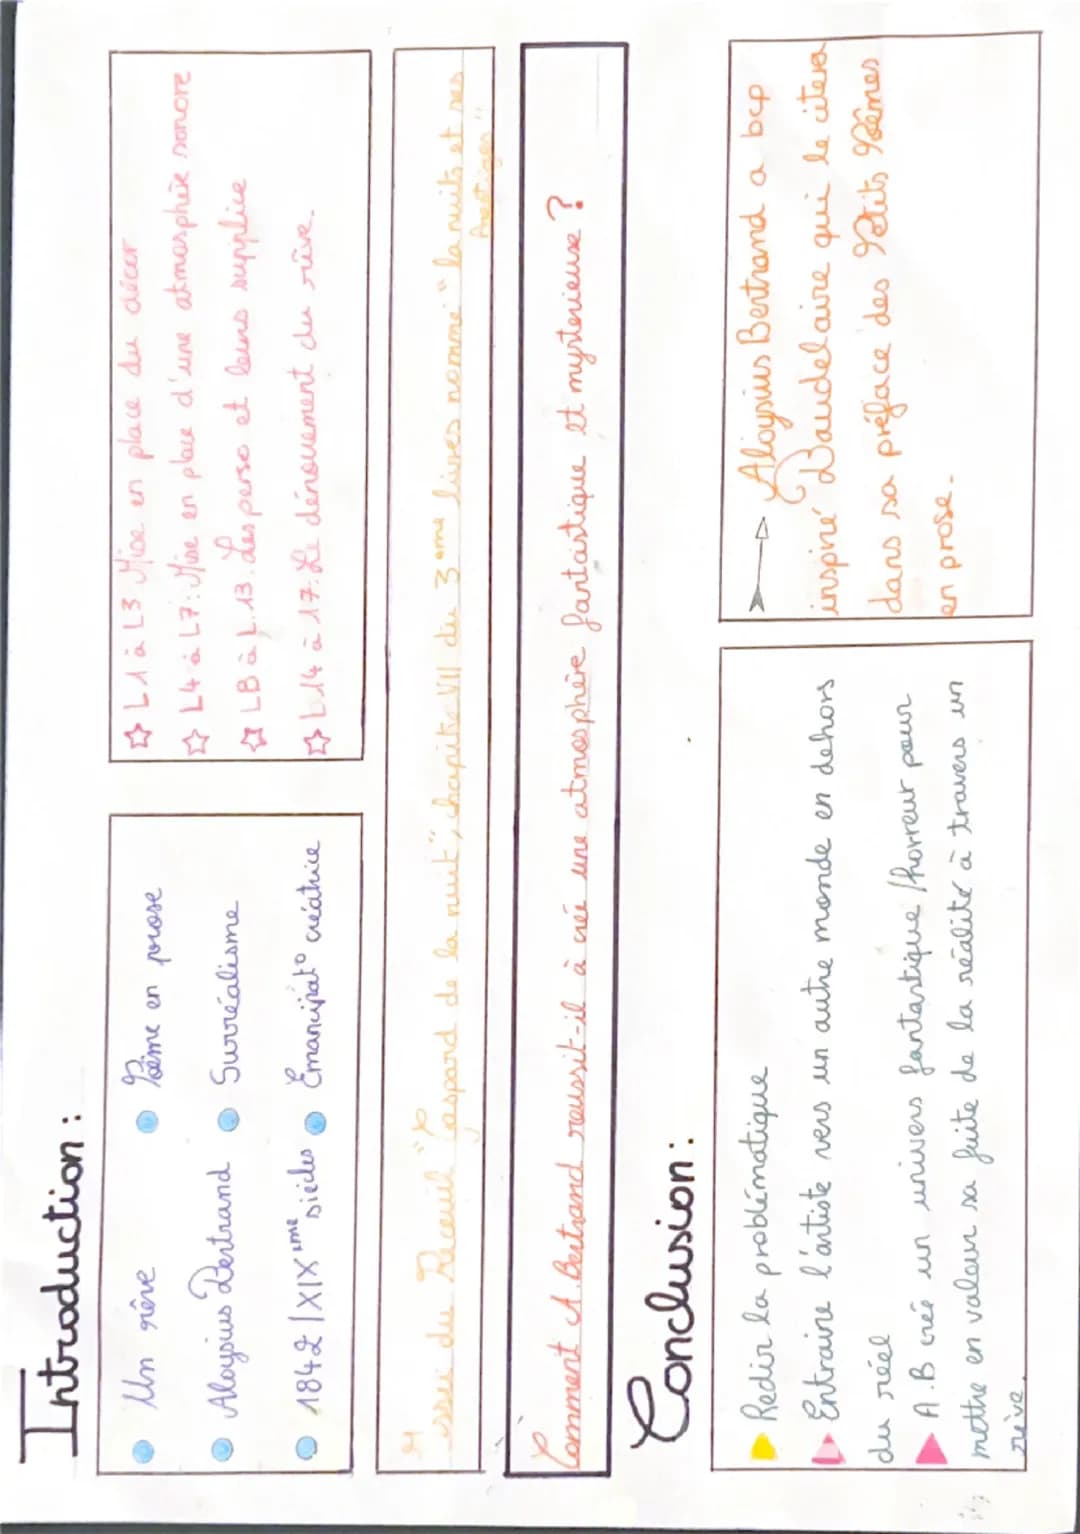 Introduction :
Un rêve
Poème en prose
Aloysius Bertrand
Surréalisme
1842 / XIX ème siècles
Émancipat° créatrice
L1 à L3 Mise en place du décor
L4 à L7 : Mise en place d'une atmosphère sonore
L8 à L.13. Les perso et leurs supplice
L14 à 17 : Le dénouement du rêve.
Issu du Receuil "Gaspard de la nuit", chapitre VII du 3 ème livres nommé "la nuits et ses
Prestiges"
Comment A. Bertrand reussit-il à créé une atmosphère fantastique et mysterieuse ?
Conclusion :
Redir la problématique
Entraine l'artiste vers un autre monde en dehors
du réel
A.B créé un univers fantastique / horreur pour
mettre en valeur sa fuite de la réalité à travers un
rêve.
Aloysius Bertrand a bcp
inspiré Baudelaire qui le citera
dans sa préface des Petits Poèmes
en prose.